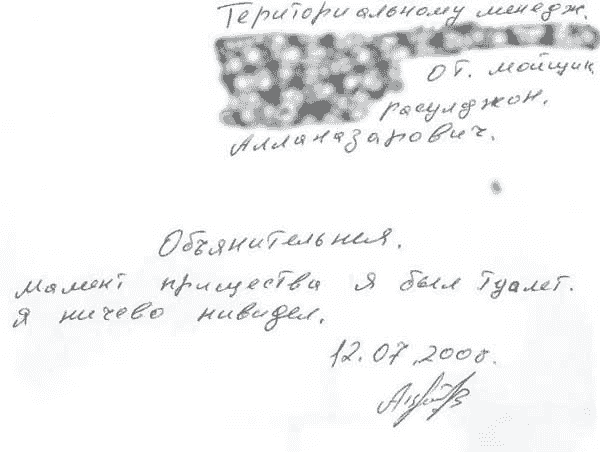 Териториальному менедж.
от. мойщик
расулджон.
Алланазарович.
Объянительная.
мамент пришества я был туалет.
я ничево нивидел.
12.07.2008.